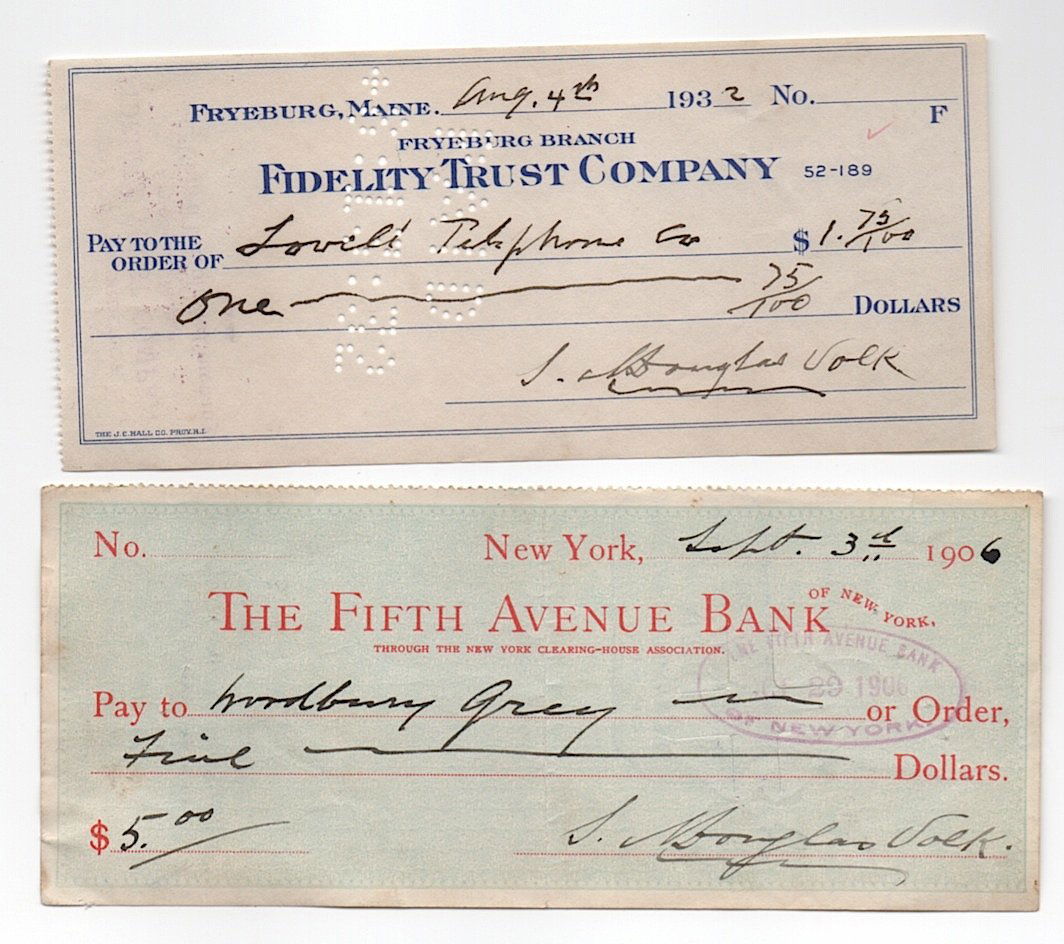 Fryeburg, Maine. Aug. 4th 1932 No.
F
Fryeburg Branch
Fidelity Trust Company 52-189
Pay to the
order of Lovell Telephone Co $1. 75/100
One 75/100 Dollars
S. A Douglas Volk
THE J. C. HALL CO. PROV. R.I.
No. New York, Sept. 3d 1906
The Fifth Avenue Bank of New York,
THROUGH THE NEW YORK CLEARING-HOUSE ASSOCIATION.
THE FIFTH AVENUE BANK
29 1906
OF NEW YORK
Pay to Woodbury Grey or Order,
Five Dollars.
$5.00
S. A Douglas Volk.